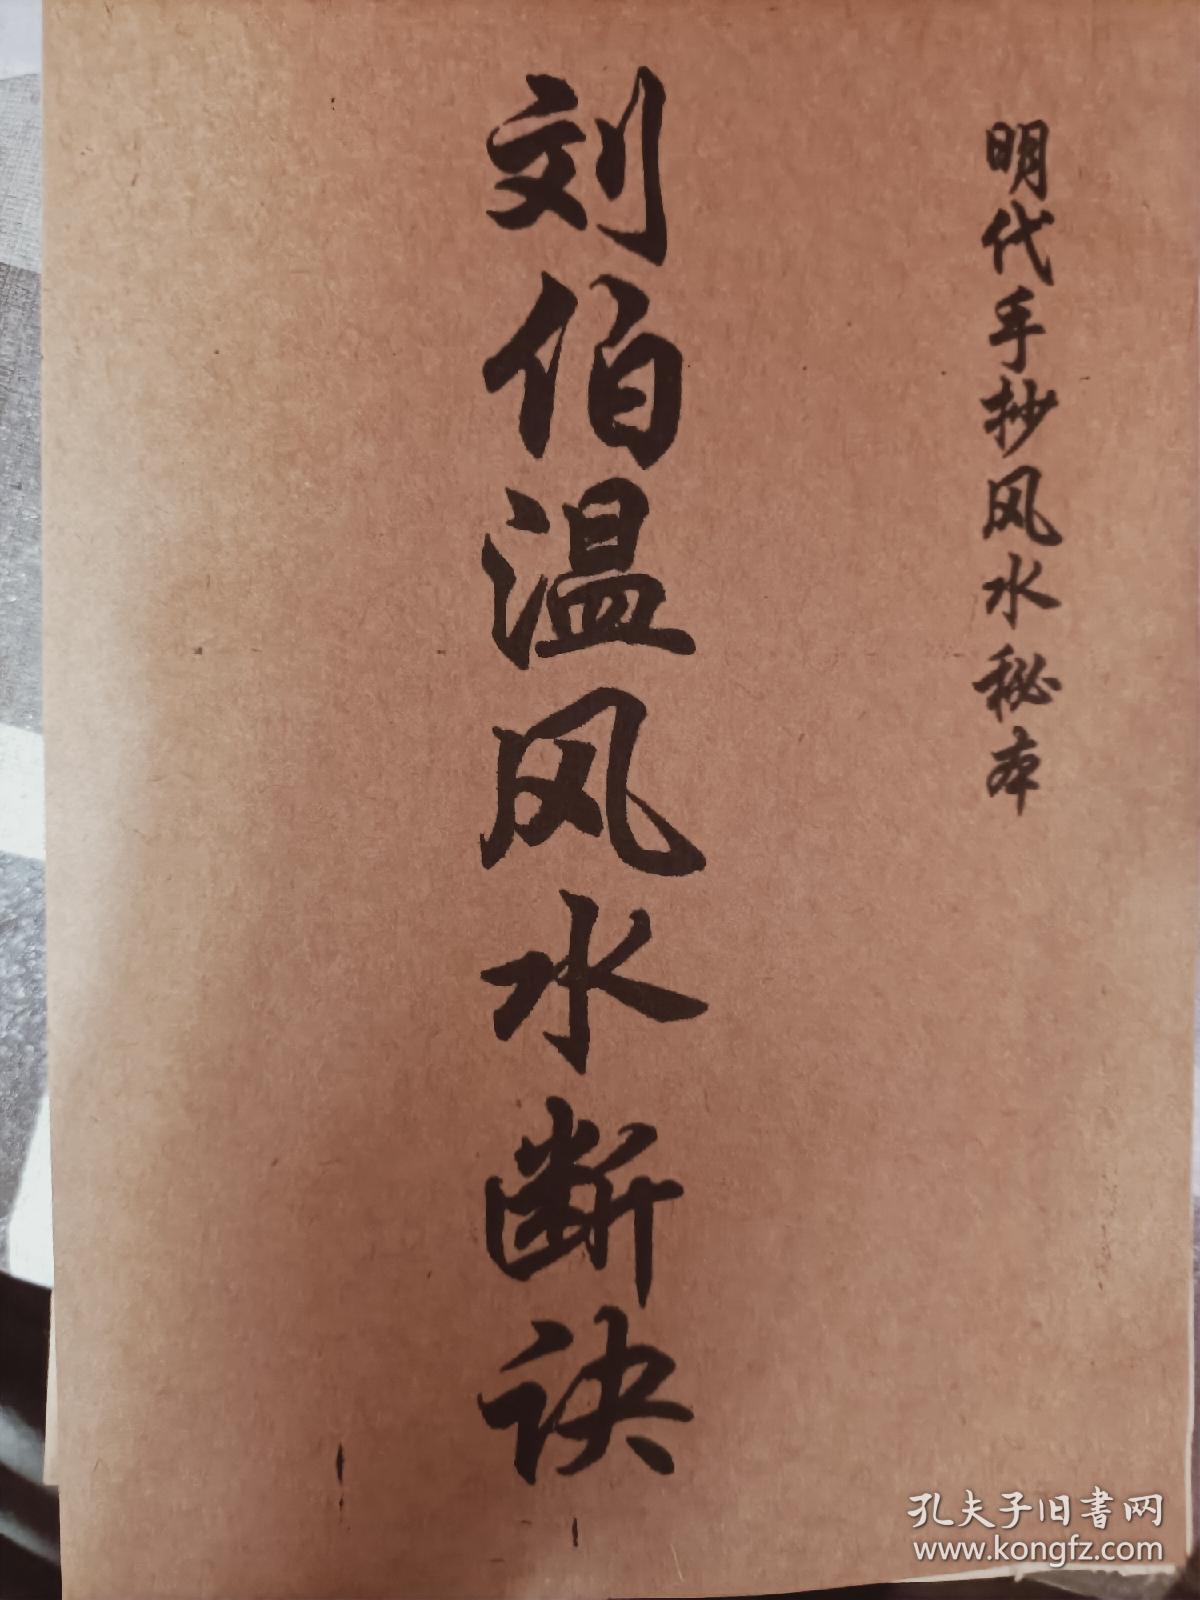 明代手抄风水秘本
刘伯温风水断诀
孔夫子旧書网
www.kongfz.com